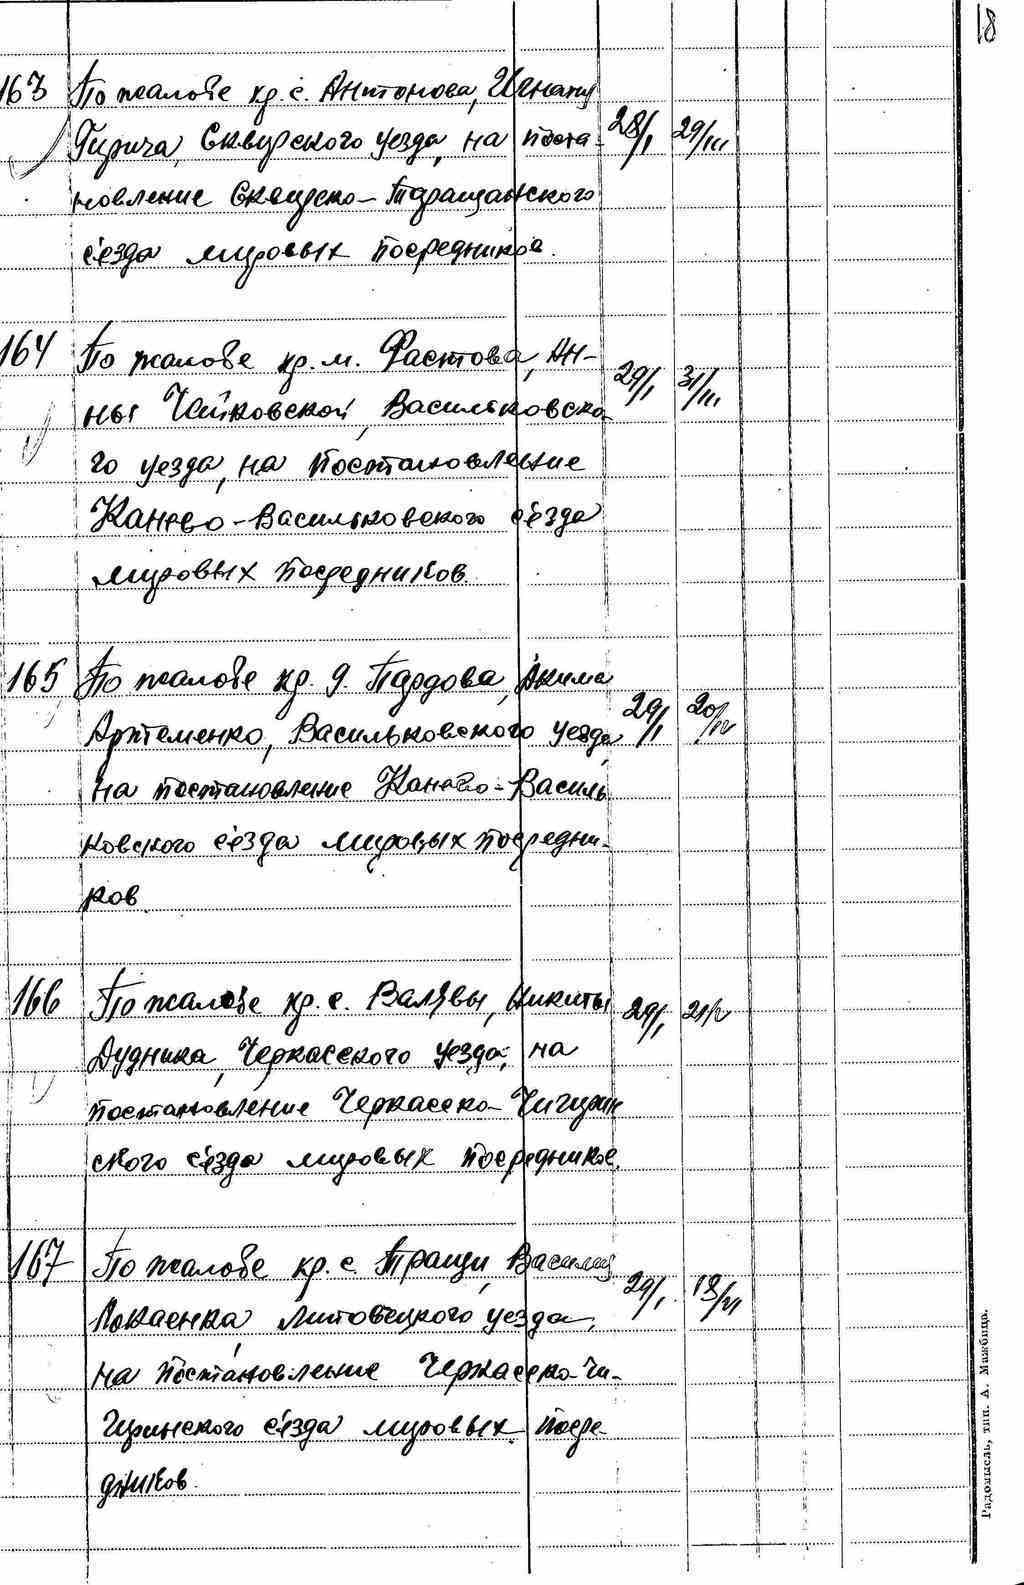 18
163 По жалобе кр. с. Антонова, Игната
Гирича, Сквирского уезда, на поста- 28/I 29/III
новление Сквирско-Таращанского
с'езда мировых посредников.
164 По жалобе кр. м. Фастова, Ан-
ны Чайковской, Васильковско- 29/I 31/III
го уезда, на постановление
Канево-Васильковского с'езда
мировых посредников.
165 По жалобе кр. д. Пардова, Акима
Артеменко, Васильковского уезда, 29/I 20/IV
на постановление Канево-Василь
ковского с'езда мировых посредни-
ков.
166 По жалобе кр. с. Валявы, Никиты 29/I
Дудника, Черкасского уезда, на
постановление Черкасско-Чигирин
ского с'езда мировых посредников.
167 По жалобе кр. с. Трощи, Василия
уезда, 29/I 18/VI
на постановление Черкасско-Чи-
гиринского с'езда мировых посре-
дников.
Радомысль, тип. А. Мажбица.